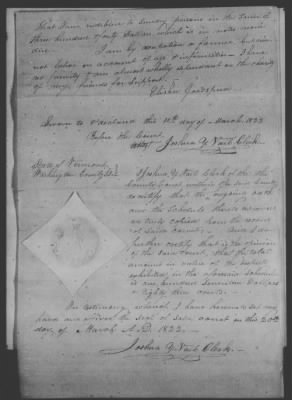 That I am indebted to sundry persons in the sum of
three hundred & forty dollars which is in notes now
due. I am by occupation a farmer but can
not labor on account of age & infirmities. I have
no family & am almost wholly dependant on the charity
of my friends for support.
Elisha
Sworn to & declared this 14th day of March 1822
before the Court
attest Joshua Y. Vail Clerk.
State of Vermont
Washington County Ss.
I Joshua Y. Vail Clerk of the
County Court within & for said County
do certify that the foregoing oath
and the Schedule thereto annexed
are truly copied from the record
of said Court; And I do
further certify that the opinion
of the said Court, that the total
amount in value of the property
exhibited in the aforesaid Schedule
is one hundred Seventeen Dollars
& Eighty five cents.
In testimony whereof I have hereunto set my
hand and affixed the seal of said Court on this 20th
day of March A.D. 1822.
Joshua Y. Vail Clerk.